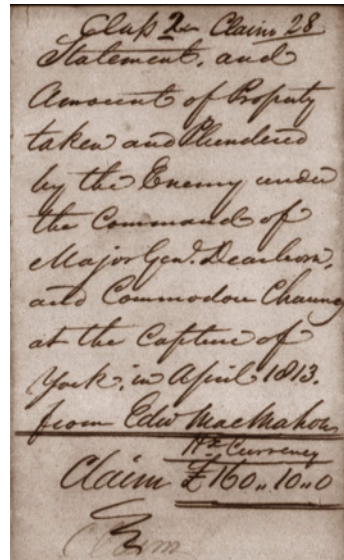 Class 2n Claim 28
Statement, and
Amount of Property
taken and Plundered
by the Enemy under
the Command of
Major Genl. Dearborn,
and Commodore Chauncy
at the Capture of
York, in April 1813.
from Edwd MacMahon
Currency
Claim £160,,10,,0